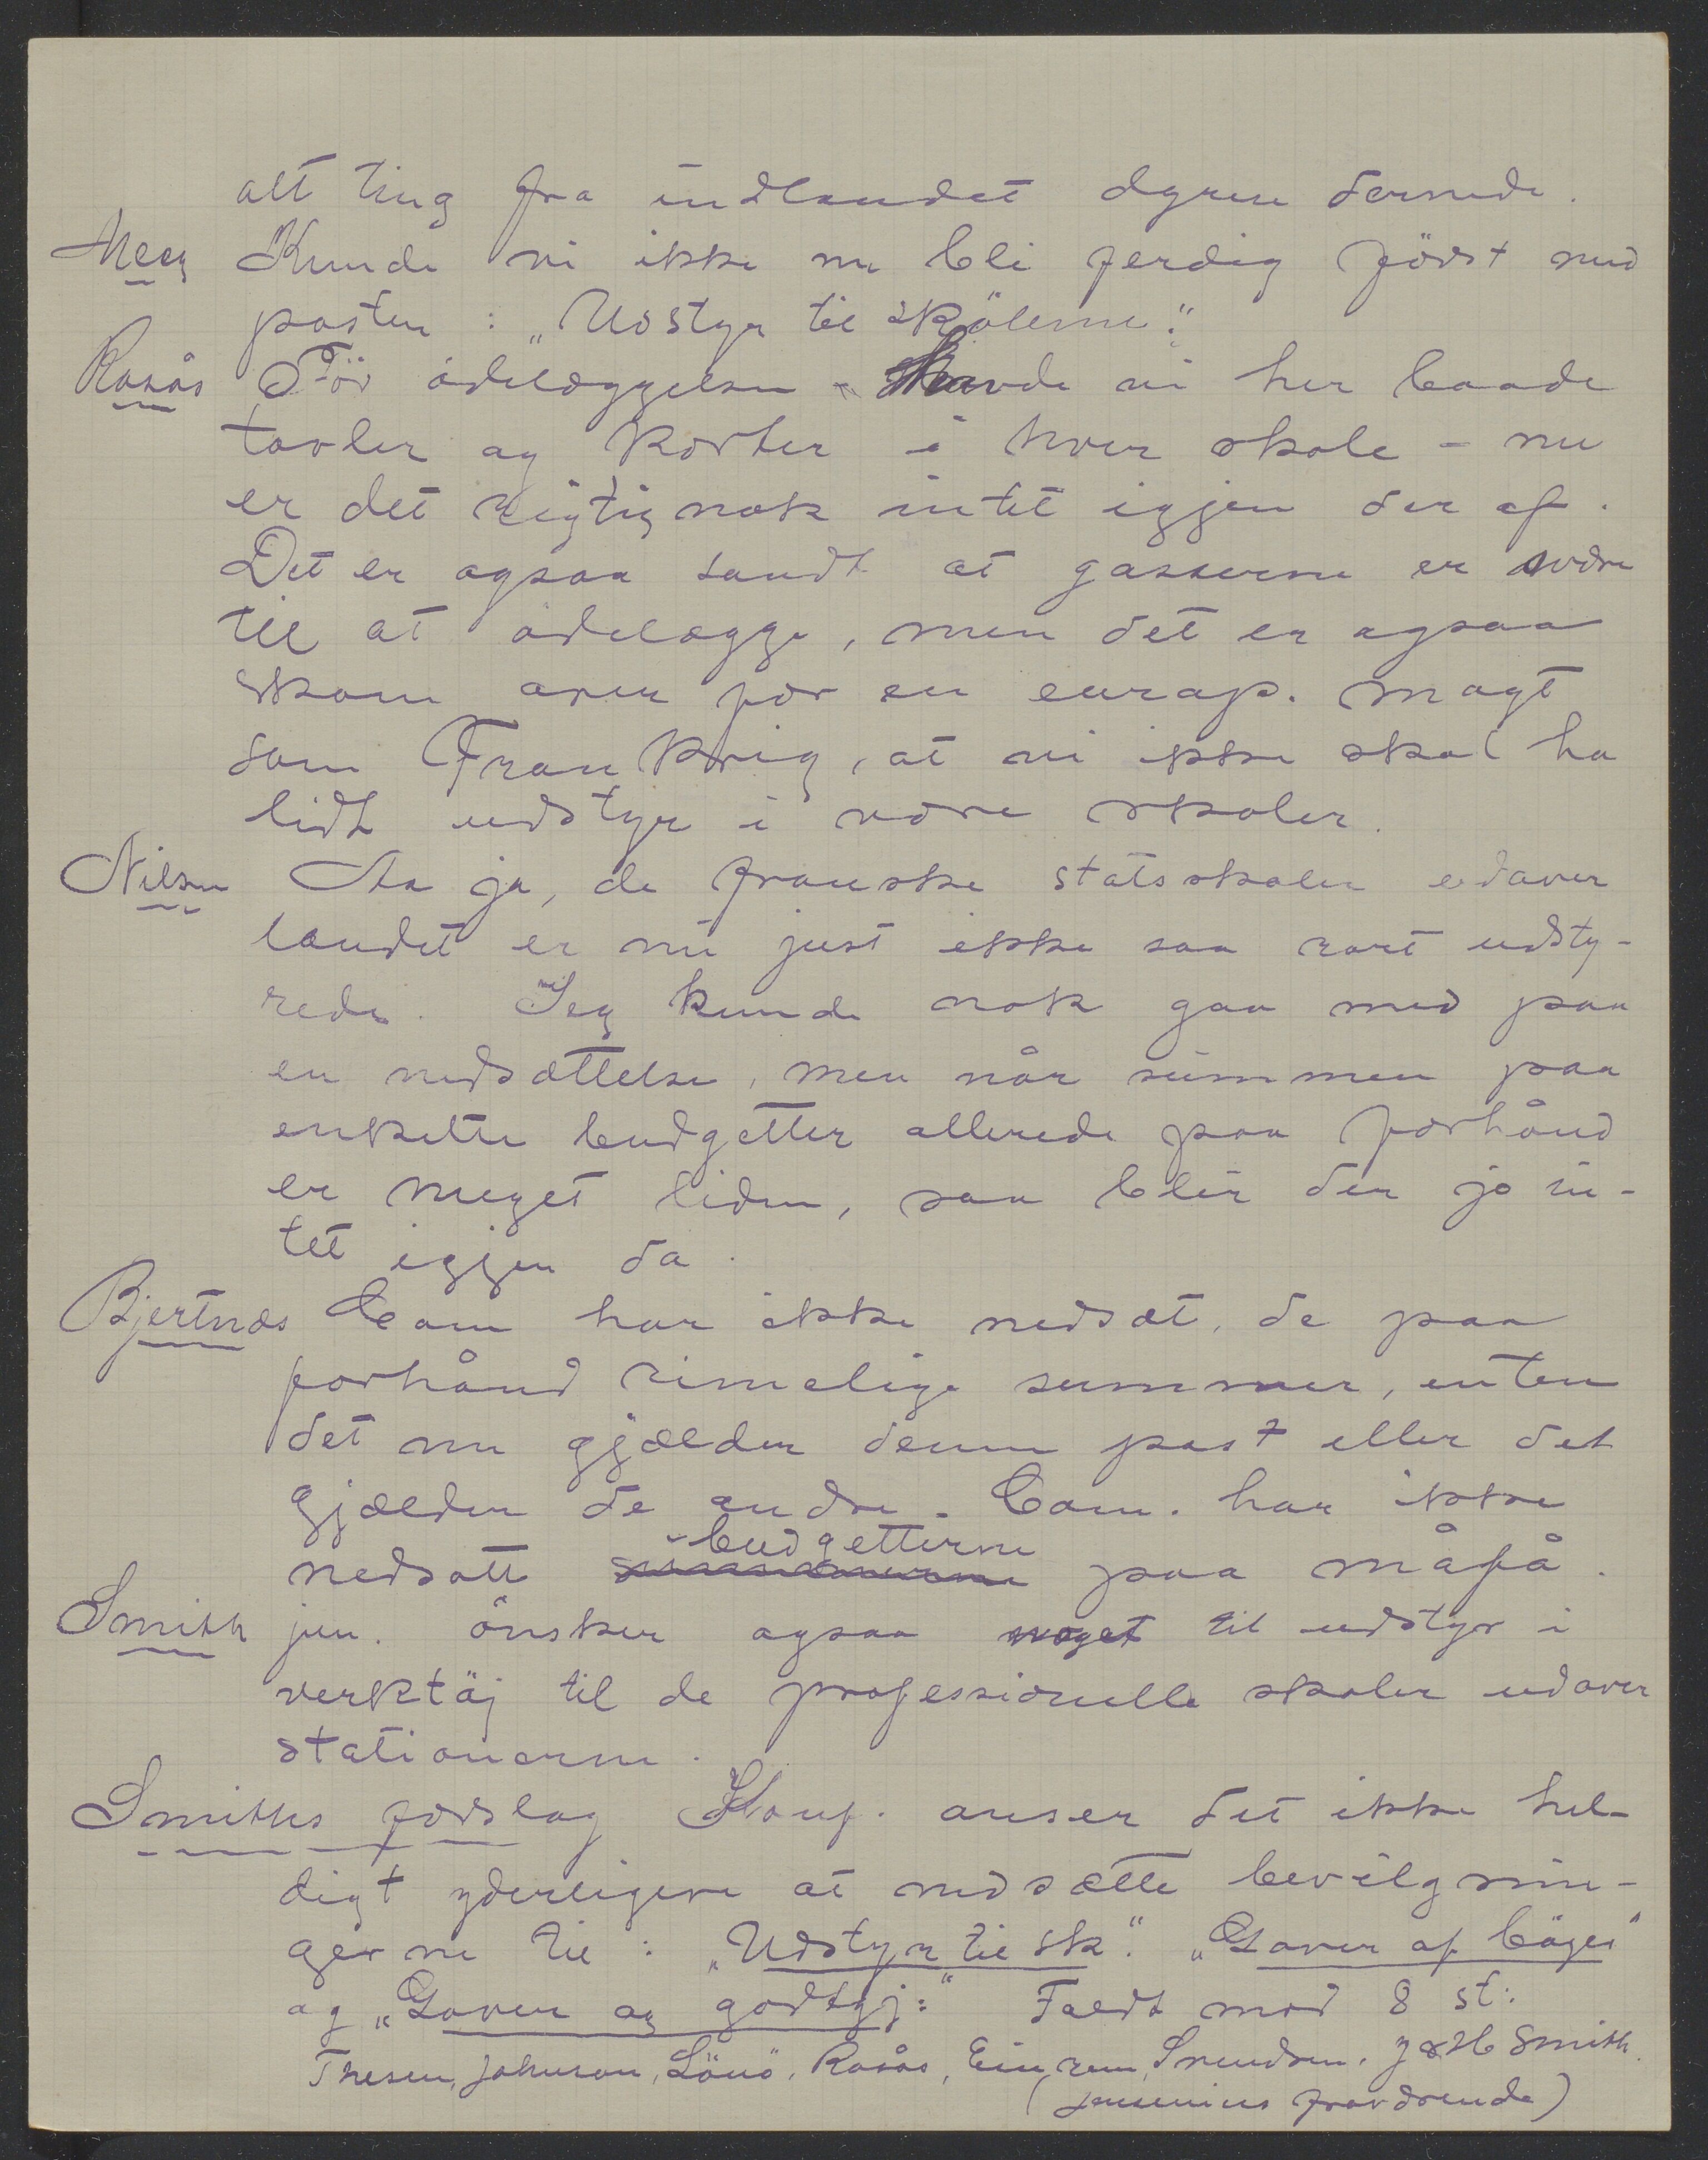 alt ting fra indlandet dyrere dernede.
Meeg Kunde vi ikke nu bli ferdig först med
posten: "Udstyr til skölerne".
Rosås För ödelæggelsen havde vi her baade
tavler og korter i hver skole - nu
er det rigtignok intet iggjen der af.
Det er ogsaa sandt at gasserne er svære
til at ödelægge, men det er ogsaa
skam over for en europ. magt
som Frankrig, at vi ikke skal ha
lidt udstyr i vore skoler.
Nilsen Aa ja, de franske statsskoler udover
landet er nu just ikke saa rart udsty-
rede. Jeg kunde nok gaa med paa
en nedsættelse, men når summen paa
enkelte budgetter allerede paa forhånd
er meget liden, saa blir der jo in-
tet iggjen da.
Bjertnæs Com har ikke nedsæt, de paa
forhånd rimelige summer, enten
det nu gjælder denne post eller det
gjælder de andre. Com. har ikke
nedsatt budgetterne paa måfå.
Smith jun. önsker ogsaa noget til udstyr i
verktöj til de professionelle skoler udover
stationerne.
Smiths forslag Konf. anser det ikke hel-
digt yderligere at nedsætte bevilgnin-
gerne til: "Udstyr til sk". "Gaver af böger"
og "Gaver og godtgj:" Faldt mod 8 st:
Thesen, Johnson, Lönö, Rosås, Einrem, Svendsen, J & H Smith.
(Jensenius fraværende)